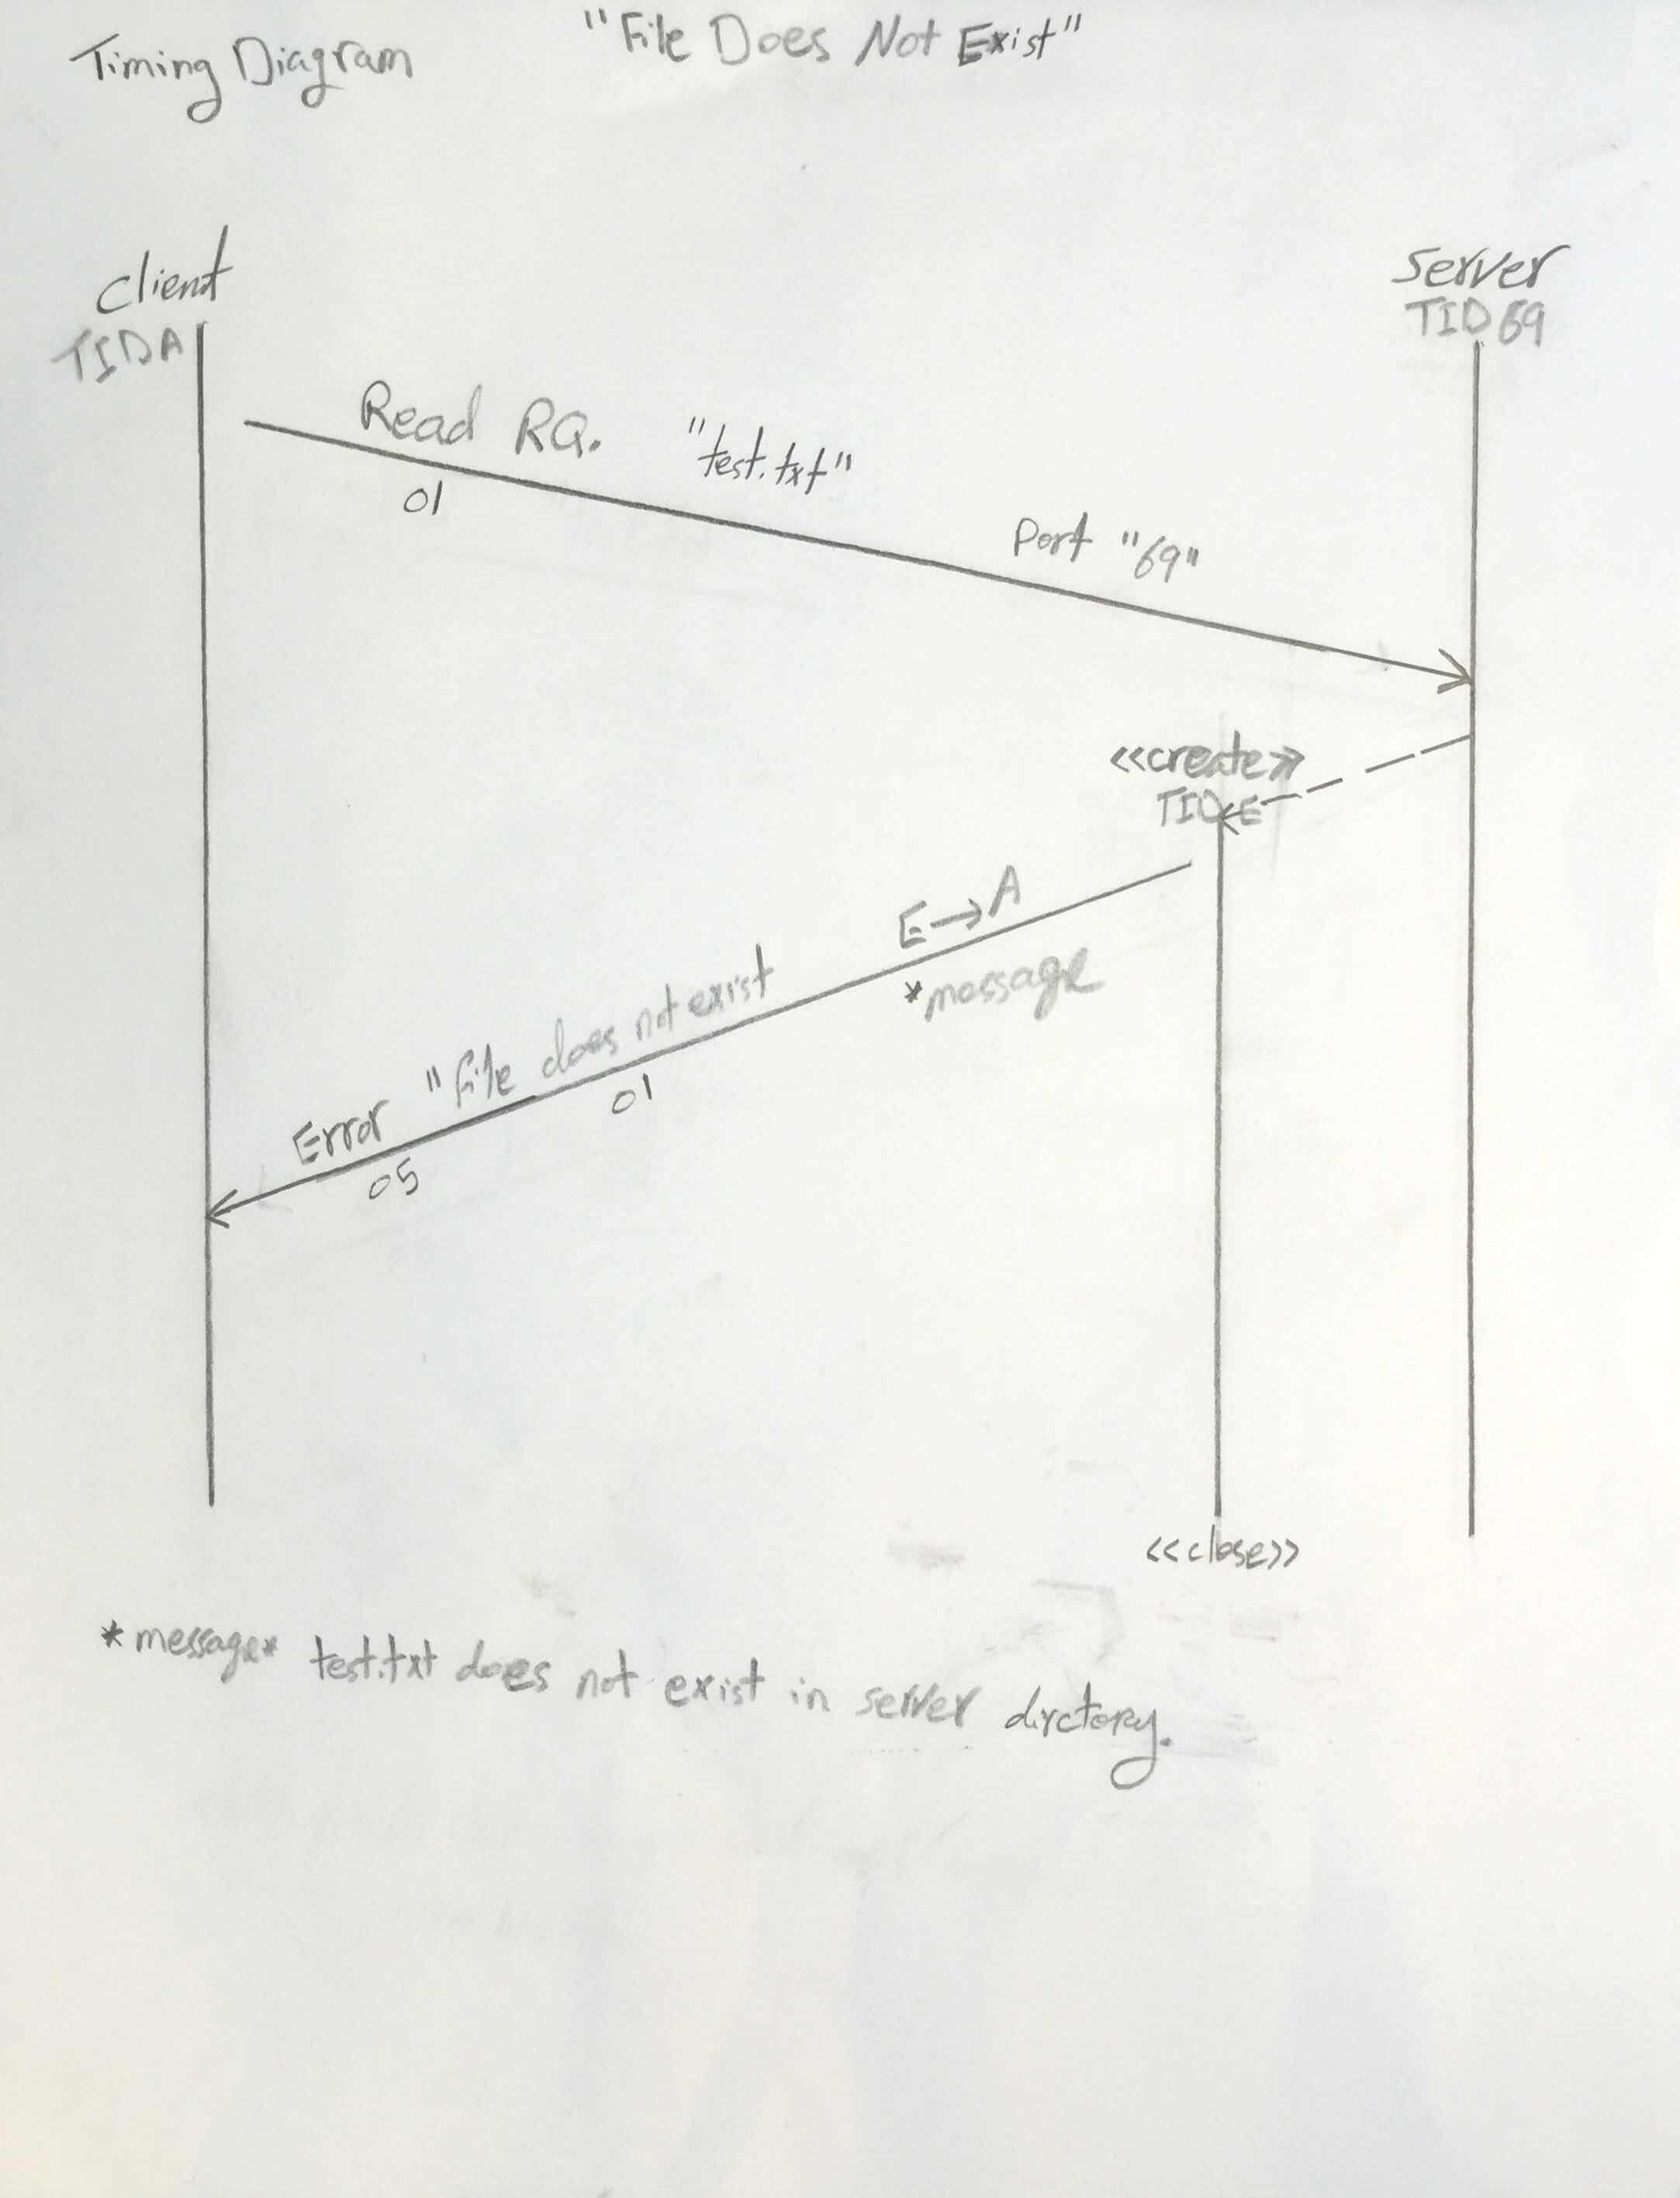 Timing Diagram "File Does Not Exist"
Client
TID A
Server
TID 69
Read RQ. "test.txt"
01
Port "69"
<<create>>
TID E
E→A
*message
Error "file does not exist
05 01
<<close>>
*message* test.txt does not exist in server dirctory.